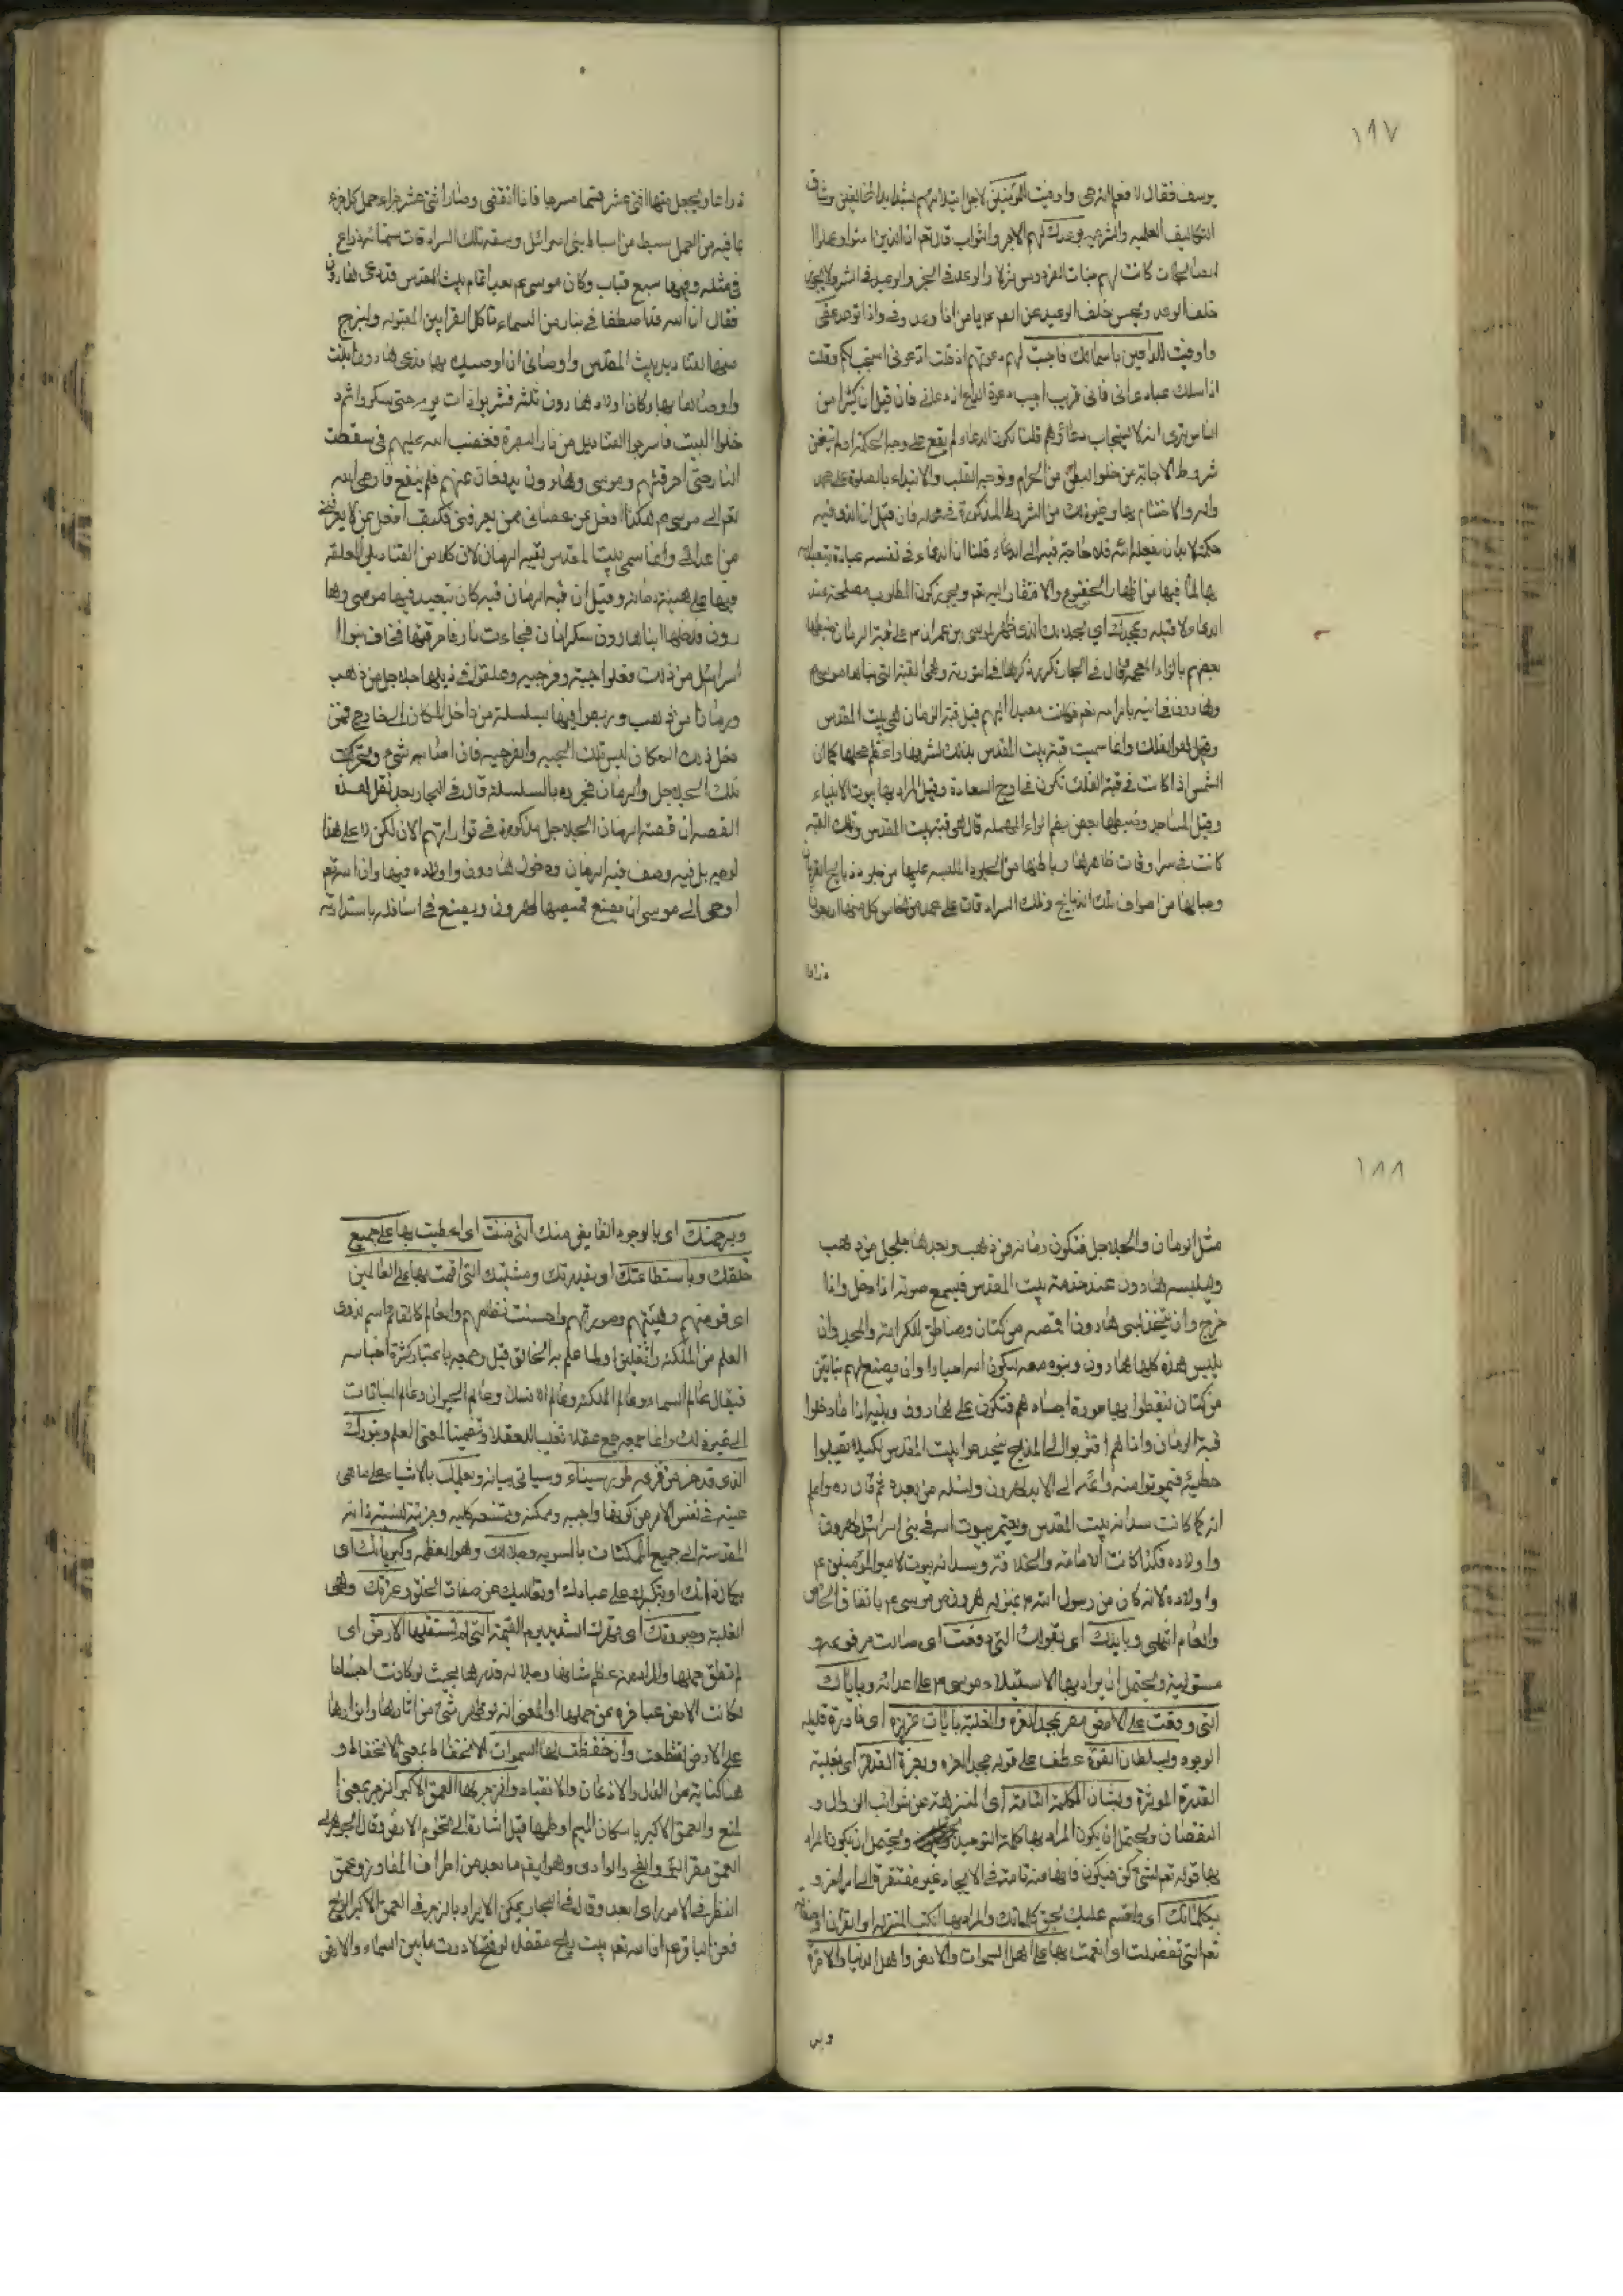 ١٨٧
يوسف فقال لا فعلم الذهبى واوفيت للمؤمنين لاجل
التكاليف العلمية والشرعية بوعدك لهم الاجر والثواب قال تعم ان الذين امنوا وعملوا
الصالحات كانت لهم جنات الفردوس نزلا والوعد فى الخير والوعيد فى الشر ولا يجوز
خلف الوعد ويحسن خلف الوعيد عن الله يا من اذا وعد وفى واذا توعد عفى
واوفيت للداعين باسمائك فاجبت لهم دعوتهم اذ قلت ادعونى استجب لكم وقلت
اذا سئلك عبادى عنى فانى قريب اجيب دعوة الداع اذا دعان فان قيل ان كثيرا من
الناس يرى انه لا يستجاب دعاؤهم قلنا لكون الدعاء لم يقع على وجه الحكمة او لم يتحقق
شروط الاجابة من خلو البطن من الحرام وتوجه القلب والابتداء بالصلوة على محمد
واله والاختتام بها وغير ذلك من الشروط المذكورة فى محله فان قيل ان الذى فيه
حكمة لا بد ان يفعله الله فلا حاجة فيه الى الدعاء قلنا ان الدعاء فى نفسه عبادة
بها لما فيها من اظهار الخضوع والافتقار اليه تعم ويجوز كون المطلوب مصلحة عند
الدعاء ولا قبله وبمجدك اى بمجدك الذى ظهر لموسى بن عمران م على قبة الرمان ضبطها
بعضهم بالزاء المعجمة قال فى البحار تكرر ذكرها فى التورية وهى القبة التى بناها موسى م
وهارون فى التيه بامر الله تعم فكانت معبدا لهم قيل قبة الزمان هى بيت المقدس
وقيل هو الفلك وانما سميت قبة بيت المقدس بذلك لشرفها وعظم محلها كما ان
الشمس اذا كانت فى قبة الفلك تكون فى اوج السعادة وقيل المراد بها بيوت الانبياء
وقيل المساجد وضبطها بعض بضم الراء المهملة قال هى قبة بيت المقدس وتلك القبة
كانت فى سرادقات ظاهرها وباطنها من الجلود الملبسة عليها من جلود ذبايح القربان
وحبالها من اصواف تلك الذبايح وتلك السرادقات على عمد من نحاس كل منها اربعون
ذراعا
ذراعا ويجعل منها اثنى عشر قسما مسرجا فاذا انقضى وصار اثنى عشر جزاء حمل كل جزء
بما فيه من العمل سبط من اسباط بنى اسرائيل وسعة تلك السرادقات ستمائة ذراع
فى مثله وفيها سبع قباب وكان موسى عم بعد اتمام بيت المقدس قد دعى هارون
فقال ان الله قد اصطفانى بنار من السماء تاكل القرابين المقبوله وليسرج
منها القناديل بيت المقدس واوصانى ان اوصيك بها فدعى هارون ابنيه
واوصاهما بها وكان اولاد هارون ثلثة فشربوا ذات يوم حتى سكروا ثم د
خلوا البيت فاسرجوا القناديل من نار الدنيا فغضب الله عليهم فسقطت
النار حتى احرقتهم وموسى وهارون يدفعان عنهم فلم ينفع فاوحى الله
تعم الى موسى م هكذا افعل عن عصانى ممن يعرفنى فكيف افعل عن لا يعرفنى
من اعدائى وانما سمى بيت المقدس بقبة الرمان لان كلا من القناديل المعلقة
فيها على هيئة رمانة وقيل ان قبة الرمان قبة كان يتعبد فيها موسى وها
رون فدخلها ابنا هارون سكرانان فجاءت نار فاحرقتهما فخاف بنوا
اسرائيل من ذلك فعلوا جبة وفرجية وعلقوا فى ذيلها جلاجل من ذهب
ورمانا من ذهب وربطوا فيها بسلسلة من داخل المكان الى خارج فمن
دخل ذلك المكان لبس تلك الجبة والفرجية فان اصابه شئ م وتحركت
تلك الجلاجل والرمان فجروه بالسلسلة قال فى البحار بعد نقل هذه
القصة ان قصة الرمان الجلاجل مذكورة فى توراتهم الان لكن لا على هذا
الوجه بل فيه وصف قبة الرمان ودخول هارون واولاده فيها وان الله تعم
اوحى الى موسى ان يصنع قميصها لهرون ويصنع فى اسفله باستدارته
١٨٨
مثل الرمان والجلاجل فتكون رمانة من ذهب وبعدها جلجل من ذهب
ويلبسه هارون عند خدمة بيت المقدس فيسمع صوته اذا دخل واذا
خرج وان يتخذ لبنى هارون اقمصة من كتان ومناطق للكرامة والمجد وان
يلبس هذه كلها هارون وبنوه معه ليكونوا لله احبارا وان يصنع لهم تبابين
من كتان ليغطوا بها عورة اجسادهم فتكون على هارون وبنيه اذا ما دخلوا
قبة الرمان واذا هم اقتربوا الى المذبح ليخدموا بيت المقدس لكيلا يقبلوا
خطيئة فيموتوا منه وانه الى الابد لهرون ونسله من بعده ثم قال ره واعلم
انه كما كانت سدانة بيت المقدس وتعمير بيوت الله فى بنى اسرائيل لهرون
واولاده فكذا كانت الامامة والخلافة وسدانة بيوت لامير المؤمنين ع
واولاده لانه كان من رسول الله م بمنزلة هرون من موسى م باتفاق الخاص
والعام انتهى وبايدك اى بقوتك التى رفعت اى صارت مرفوعة و
مستولية ويحتمل ان يراد بها الاستيلاء موسى م على اعدائه وباياتك
التى وقعت على الارض مصر بمجد العزة والغلبة بايات عزيزة اى نادرة قليلة
الوجود وبسلطان القوة عطف على قوله بمجد العزة وبعزة القدرة اى بغلبة
القدرة المؤثرة وبشان الكلمة التامة اى المنزهة عن شوائب الزوال و
النقصان ويحتمل ان يكون المراد بها كلمة التوحيد ويحتمل ان يكون المراد
بها قوله تعم لشئ كن فيكون فانها منه تامة فى الايجاد غير مفتقرة الى امر اخر و
بكلماتك اى واقسم عليك بحق كلماتك والمراد بها الكتب المنزلة او القران او
تعم التى تفضلت اى انعمت بها على اهل السموات والارض واهل الدنيا والاخرة
وبر
وبرحمتك اى بالوجود الفايض منك التى مننت اى اعطيت بها على جميع
خلقك وباستطاعتك او بقدرتك ومشيتك التى اقمت بها على العالمين
اى قومتهم وهيئتهم وصورتهم واحسنت نظامهم والعالم كالقالم اسم لذوى
العلم من الملئكة والثقلين او لما علم به الخالق قيل وجمعه باعتبار كثرة اجناسه
فيقال عالم السماء وعالم الملئكة وعالم الانسان وعالم الحيوان وعالم النباتات
الى غير ذلك وانما جمعه جمع عقلاء تغليبا للعقلاء وتضمينا لمعنى العلم وبنورك
الذى قد خر من فزعه طور سيناء وسياتى بيانه وبعلمك بالاشياء على ما هى
عينه فى نفس الامر من كونها واجبه وممكنة وممتنعة كلية وجزئية لنسبة ذاته
المقدسة الى جميع الممكنات بالسوية وجلالك وهو العظمة وكبريائك اى
بكمال ذاتك او بتكبرك على عبادك او بتعاليك عن صفات الخلق وعزتك وهى
الغلبة وجبروتك اى وقهرك الشديد يوم القيمة التى لم تستقلها الارض اى
لم تطق حملها والمراد من عظم شانها وجلالة قدرها بحيث لو كانت اجساما
لكانت الارض عاجزة عن حملها او المعنى انه لو ظهر شئ من اثارها وانوارها
على الارض لتقطعت وانخفضت لها السموات الانخفاض بمعنى الانحطاط و
هنا كناية من الذل والاذعان والانقياد وانزجر لها العمق الاكبر انزجر بمعنى ا
لمنع والعمق الاكبر باسكان الميم او ضمها قيل اشارة الى تخوم الارض وقال الجوهرى
العمق قعر البئر والفج والوادى وهو ايضم ما بعد من اطراف المفاوز وعمق
النظر فى الامور اى بعد وقال فى البحار يمكن الايراد بالزجر فى العمق الاكبر الريح
فعن النبى تزعم ان الله تعم بيت ريح مقفلة لو فتح لاذرت ما بين السماء والارض